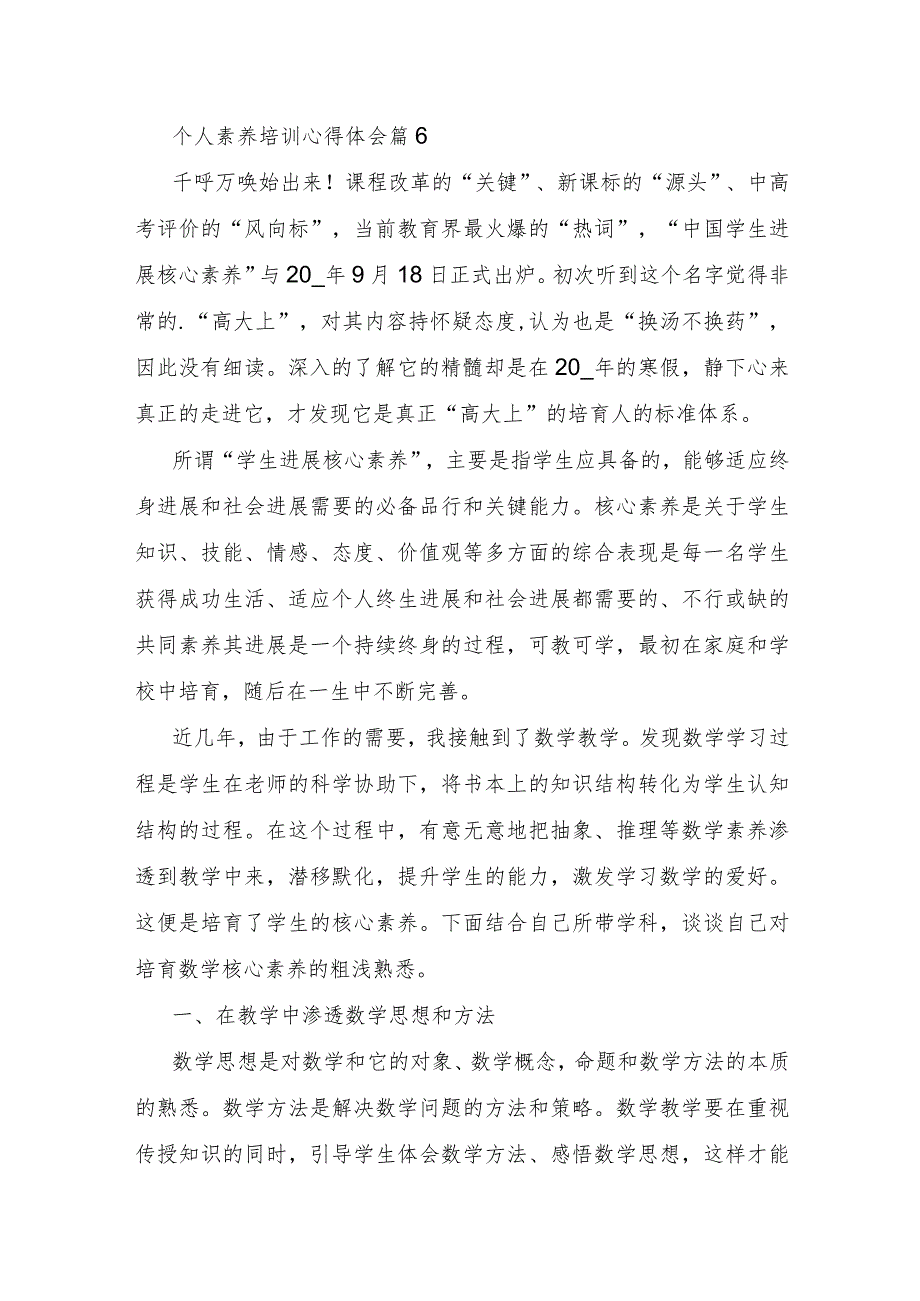 个人素养培训心得体会篇6
千呼万唤始出来！课程改革的“关键”、新课标的“源头”、中高
考评价的“风向标”，当前教育界最火爆的“热词”，“中国学生进
展核心素养”与20_年9月18日正式出炉。初次听到这个名字觉得非
常的.“高大上”，对其内容持怀疑态度,认为也是“换汤不换药”，
因此没有细读。深入的了解它的精髓却是在20_年的寒假，静下心来
真正的走进它，才发现它是真正“高大上”的培育人的标准体系。
所谓“学生进展核心素养”，主要是指学生应具备的，能够适应终
身进展和社会进展需要的必备品行和关键能力。核心素养是关于学生
知识、技能、情感、态度、价值观等多方面的综合表现是每一名学生
获得成功生活、适应个人终生进展和社会进展都需要的、不行或缺的
共同素养其进展是一个持续终身的过程，可教可学，最初在家庭和学
校中培育，随后在一生中不断完善。
近几年，由于工作的需要，我接触到了数学教学。发现数学学习过
程是学生在老师的科学协助下，将书本上的知识结构转化为学生认知
结构的过程。在这个过程中，有意无意地把抽象、推理等数学素养渗
透到教学中来，潜移默化，提升学生的能力，激发学习数学的爱好。
这便是培育了学生的核心素养。下面结合自己所带学科，谈谈自己对
培育数学核心素养的粗浅熟悉。
一、在教学中渗透数学思想和方法
数学思想是对数学和它的对象、数学概念，命题和数学方法的本质
的熟悉。数学方法是解决数学问题的方法和策略。数学教学要在重视
传授知识的同时，引导学生体会数学方法、感悟数学思想，这样才能